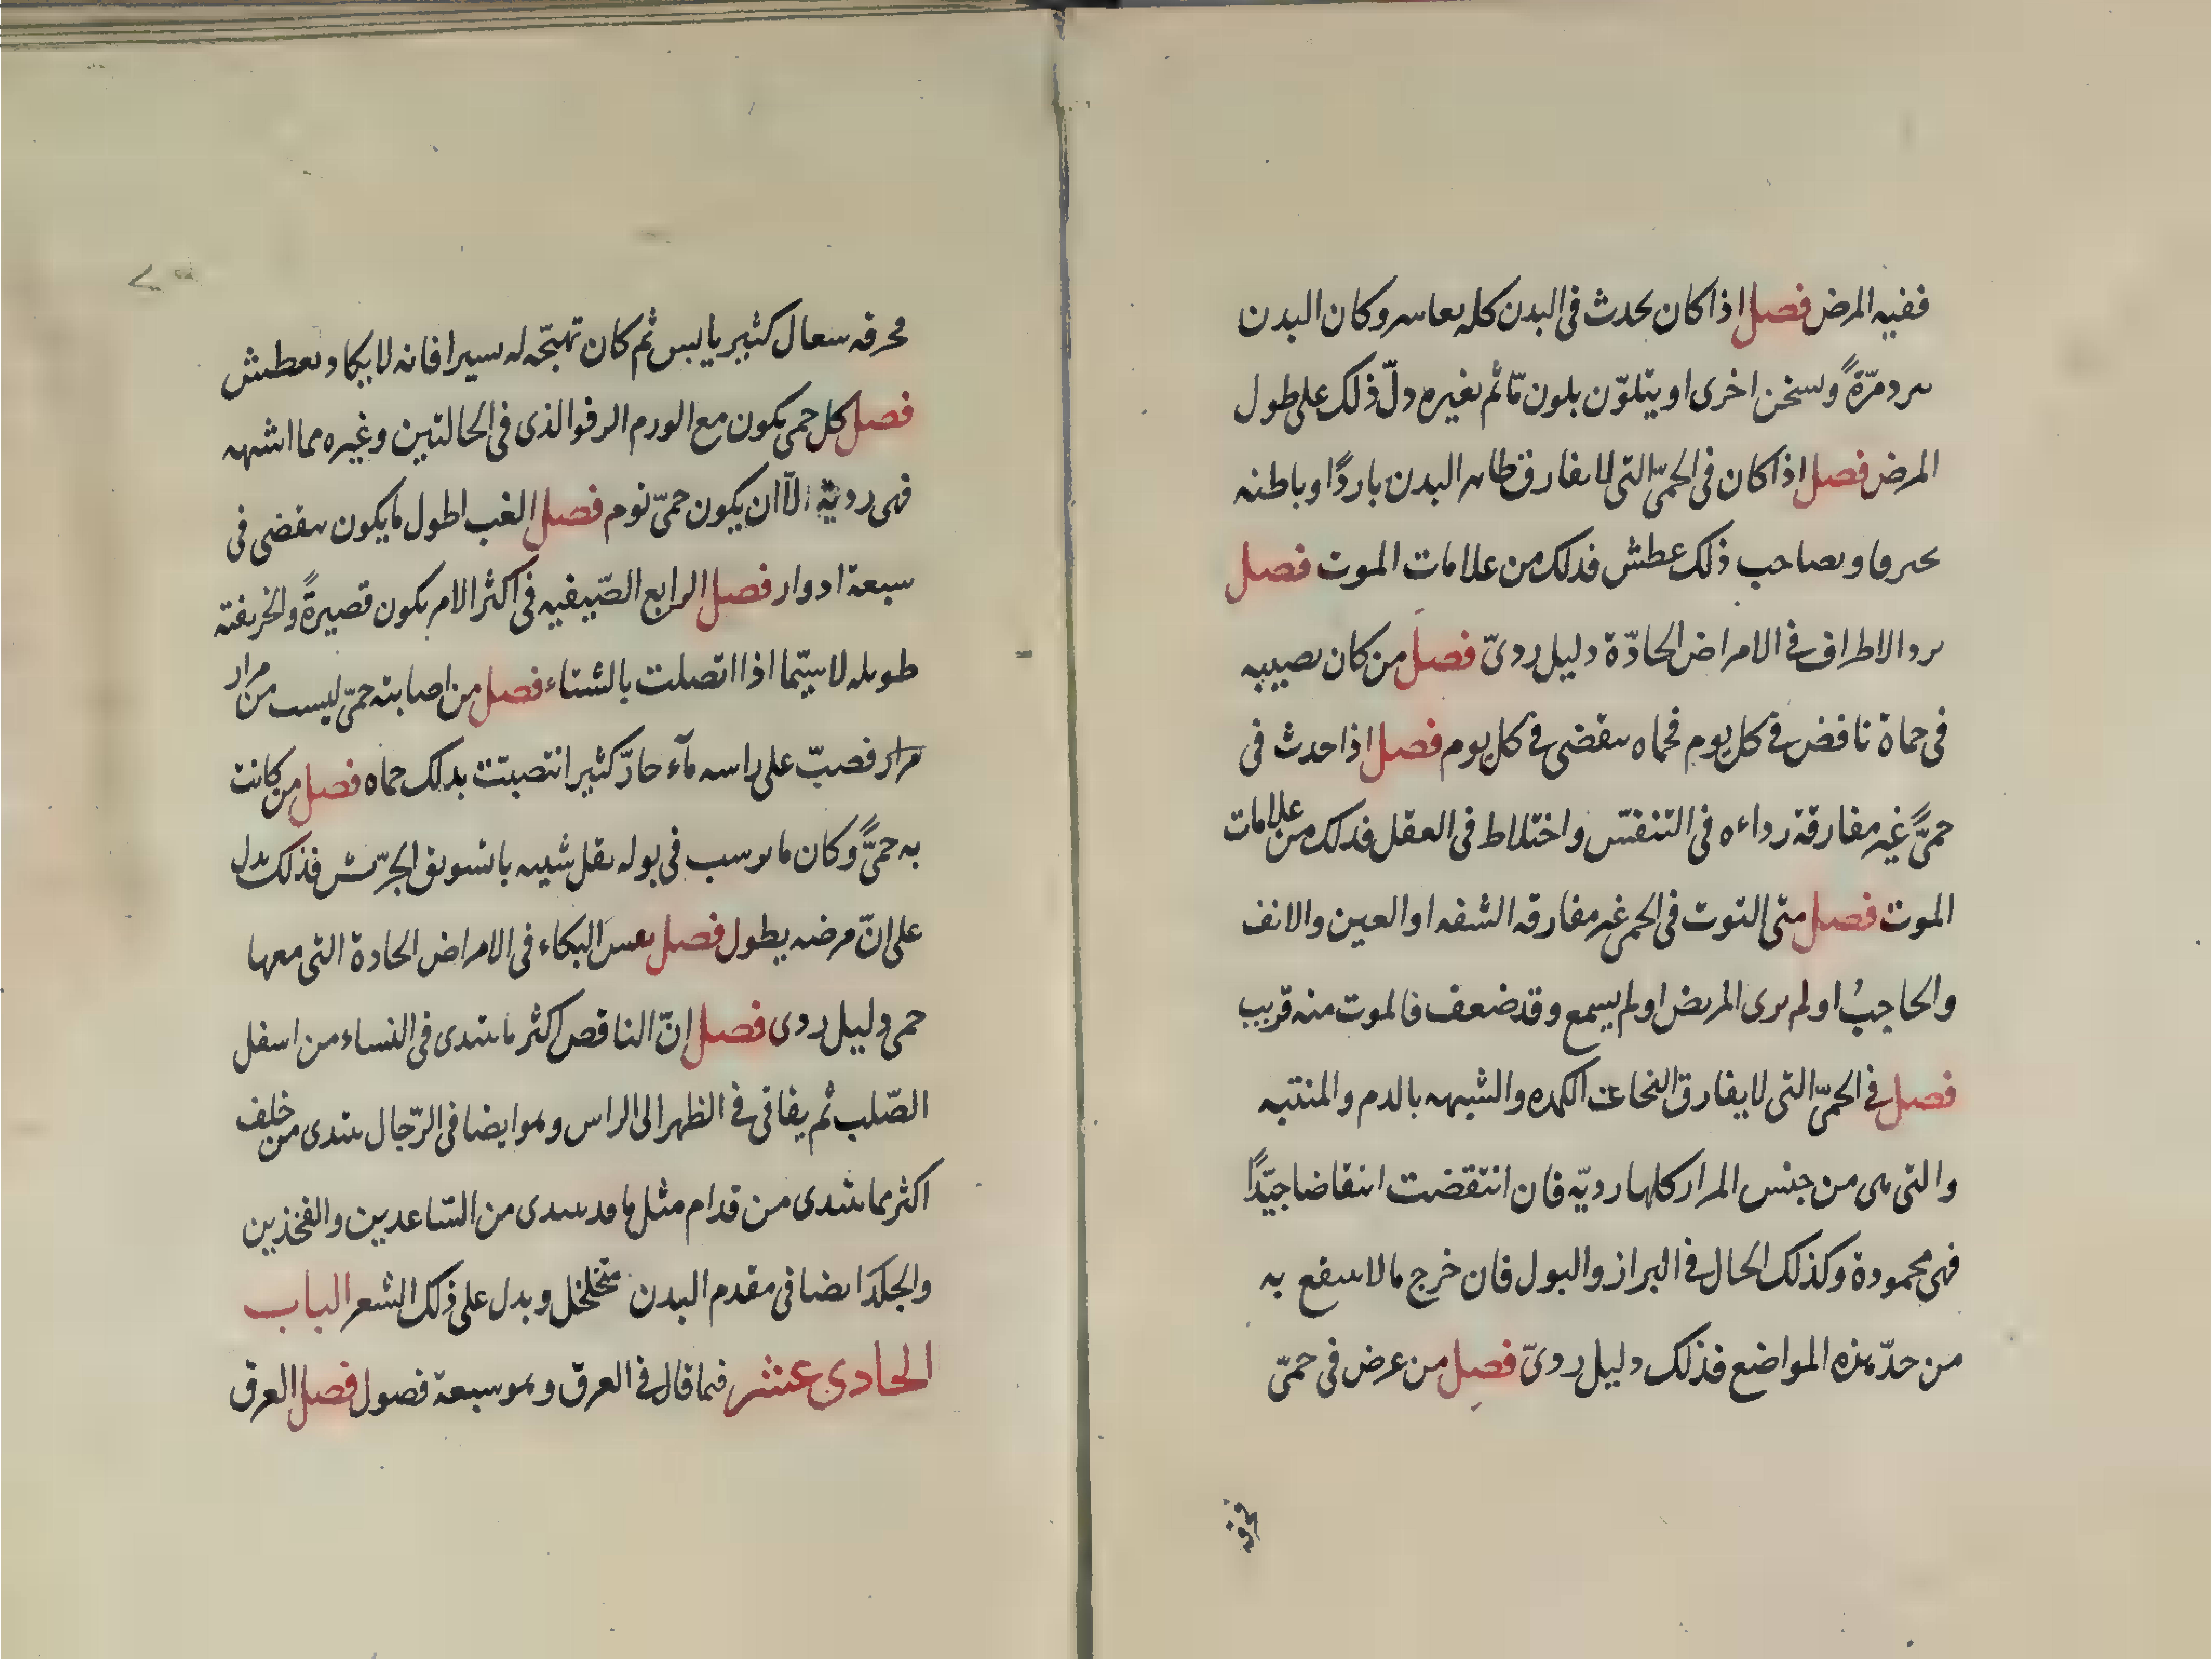 ففيه المرض فصل اذا كان يحدث فى البدن كله تغاير وكان البدن
يبرد مرّةً ويسخن اخرى او يتلوّن بلون مّا ثم بغيره دلّ ذلك على طول
المرض فصل اذا كان فى الحمىّ التى لا يفارق ظاهر البدن باردًا وباطنه
يحترق وبصاحب ذلك عطش فذلك من علامات الموت فصل
برد الاطراف فى الامراض الحادّة دليل ردىّ فصل من كان يصيبه
فى حماة نافض فى كل يوم فحماه ينقضى فى كل يوم فصل اذا حدث فى
حمىًّ غير مفارقة رداءه فى التنفسّ واختلاط فى العقل فذلك من علامات
الموت فصل متى التوت فى الحمى غير مفارقه الشفه او العين والانف
والحاجبُ او لم يرى المريض او لم يسمع وقد ضعف فالموت منه قريب
فصل فى الحمىّ التى لا يفارق النخاعت الكمده والشبيهه بالدم والمنتنه
والتى هى من جنس المرار كلها رديّه فان انتقضت انتقاضا جيّدًا
فهى محمودة وكذلك الحال فى البراز والبول فان خرج مالا ينتفع به
من حدّ هذه المواضع فذلك دليل ردىّ فصل من عرض فى حمىّ
محرقه
محرقه سعال كثير يابس ثم كان تهيّجه له يسيرا فانه لا يكاد يعطش
فصل كل حمى يكون مع الورم الرفو الذى فى الحالتين وغيره مما اشبهه
فهى رديّة الّا ان يكون حمىّ نوم فصل الغب اطول ما يكون ينقضى فى
سبعة ادوار فصل الرابع الصّيفيه فى اكثر الامر يكون قصيرةً والخريفته
طويله لا سيّما اذا اتصلت بالشتاء فصل من اصابته حمىّ ليست من مرار
مرار فصبّ على راسه مآء حارّ كثير انتصبتت بذلك حماه فصل من كانت
به حمىًّ وكان ما يرسب فى بوله ثقل شبيه بالسّويق الجريش فذلك يدل
على انّ مرضه يطول فصل نفس البكاء فى الامراض الحادة التى معها
حمى دليل ردى فصل انّ الناقص اكثر ما يبتدى فى النساء من اسفل
الصّلب ثم يفاقى فى الظهر الى الراس وهو ايضا فى الرّجال يبتدى من خلف
اكثر مما يبتدى من قدام مثل ما قد يبتدى من السّاعدين والفخذين
والجلدَ ايضا فى مقدم البدن متخلخل ويدل على ذلك الشعر الباب
الحادى عشر فيما قال فى العرق وهو سبعة فصول فصل العرق